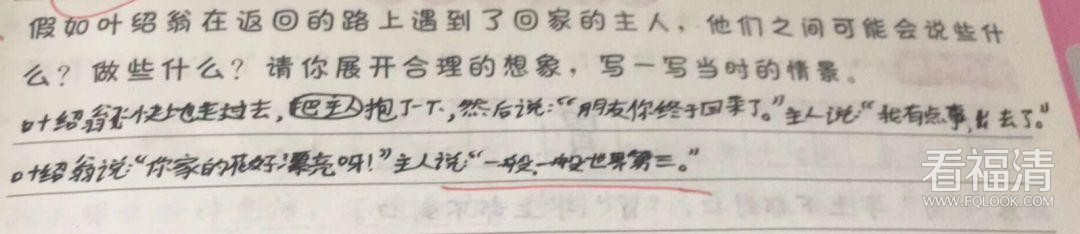 假如叶绍翁在返回的路上遇到了回家的主人，他们之间可能会说些什
么？做些什么？请你展开合理的想象，写一写当时的情景。
叶绍翁快地走过去，把主人抱了一下，然后说：“朋友你终于回来了。”主人说“我有点事，出去了。”
叶绍翁说：“你家的花好漂亮呀！”主人说“一般，一般世界第三。”
看福清
WWW.FQLOOK.COM